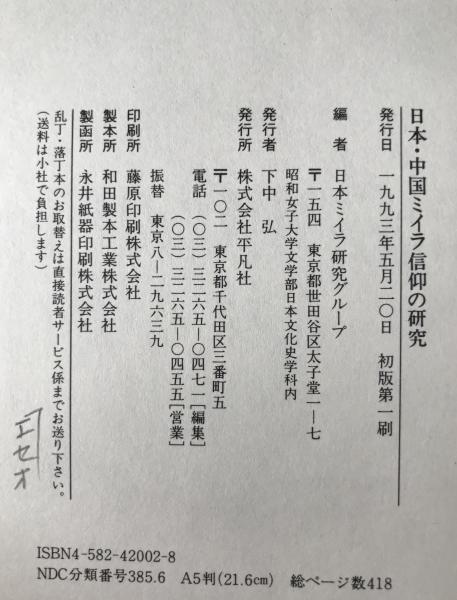 日本・中国ミイラ信仰の研究
発行日 一九九三年五月二〇日 初版第一刷
編者 日本ミイラ研究グループ
〒一五四 東京都世田谷区太子堂一―七
昭和女子大学文学部日本文化史学科内
発行者 下中 弘
発行所 株式会社平凡社
〒一〇二 東京都千代田区三番町五
電話 (〇三)三二六五―〇四七一[編集]
(〇三)三二六五―〇四五五[営業]
振替 東京八―二九六三九
印刷所 藤原印刷株式会社
製本所 和田製本工業株式会社
製函所 永井紙器印刷株式会社
乱丁・落丁本のお取替えは直接読者サービス係までお送り下さい。
(送料は小社で負担します)
エセオ
ISBN4-582-42002-8
NDC分類番号385.6 A5判(21.6cm) 総ページ数418